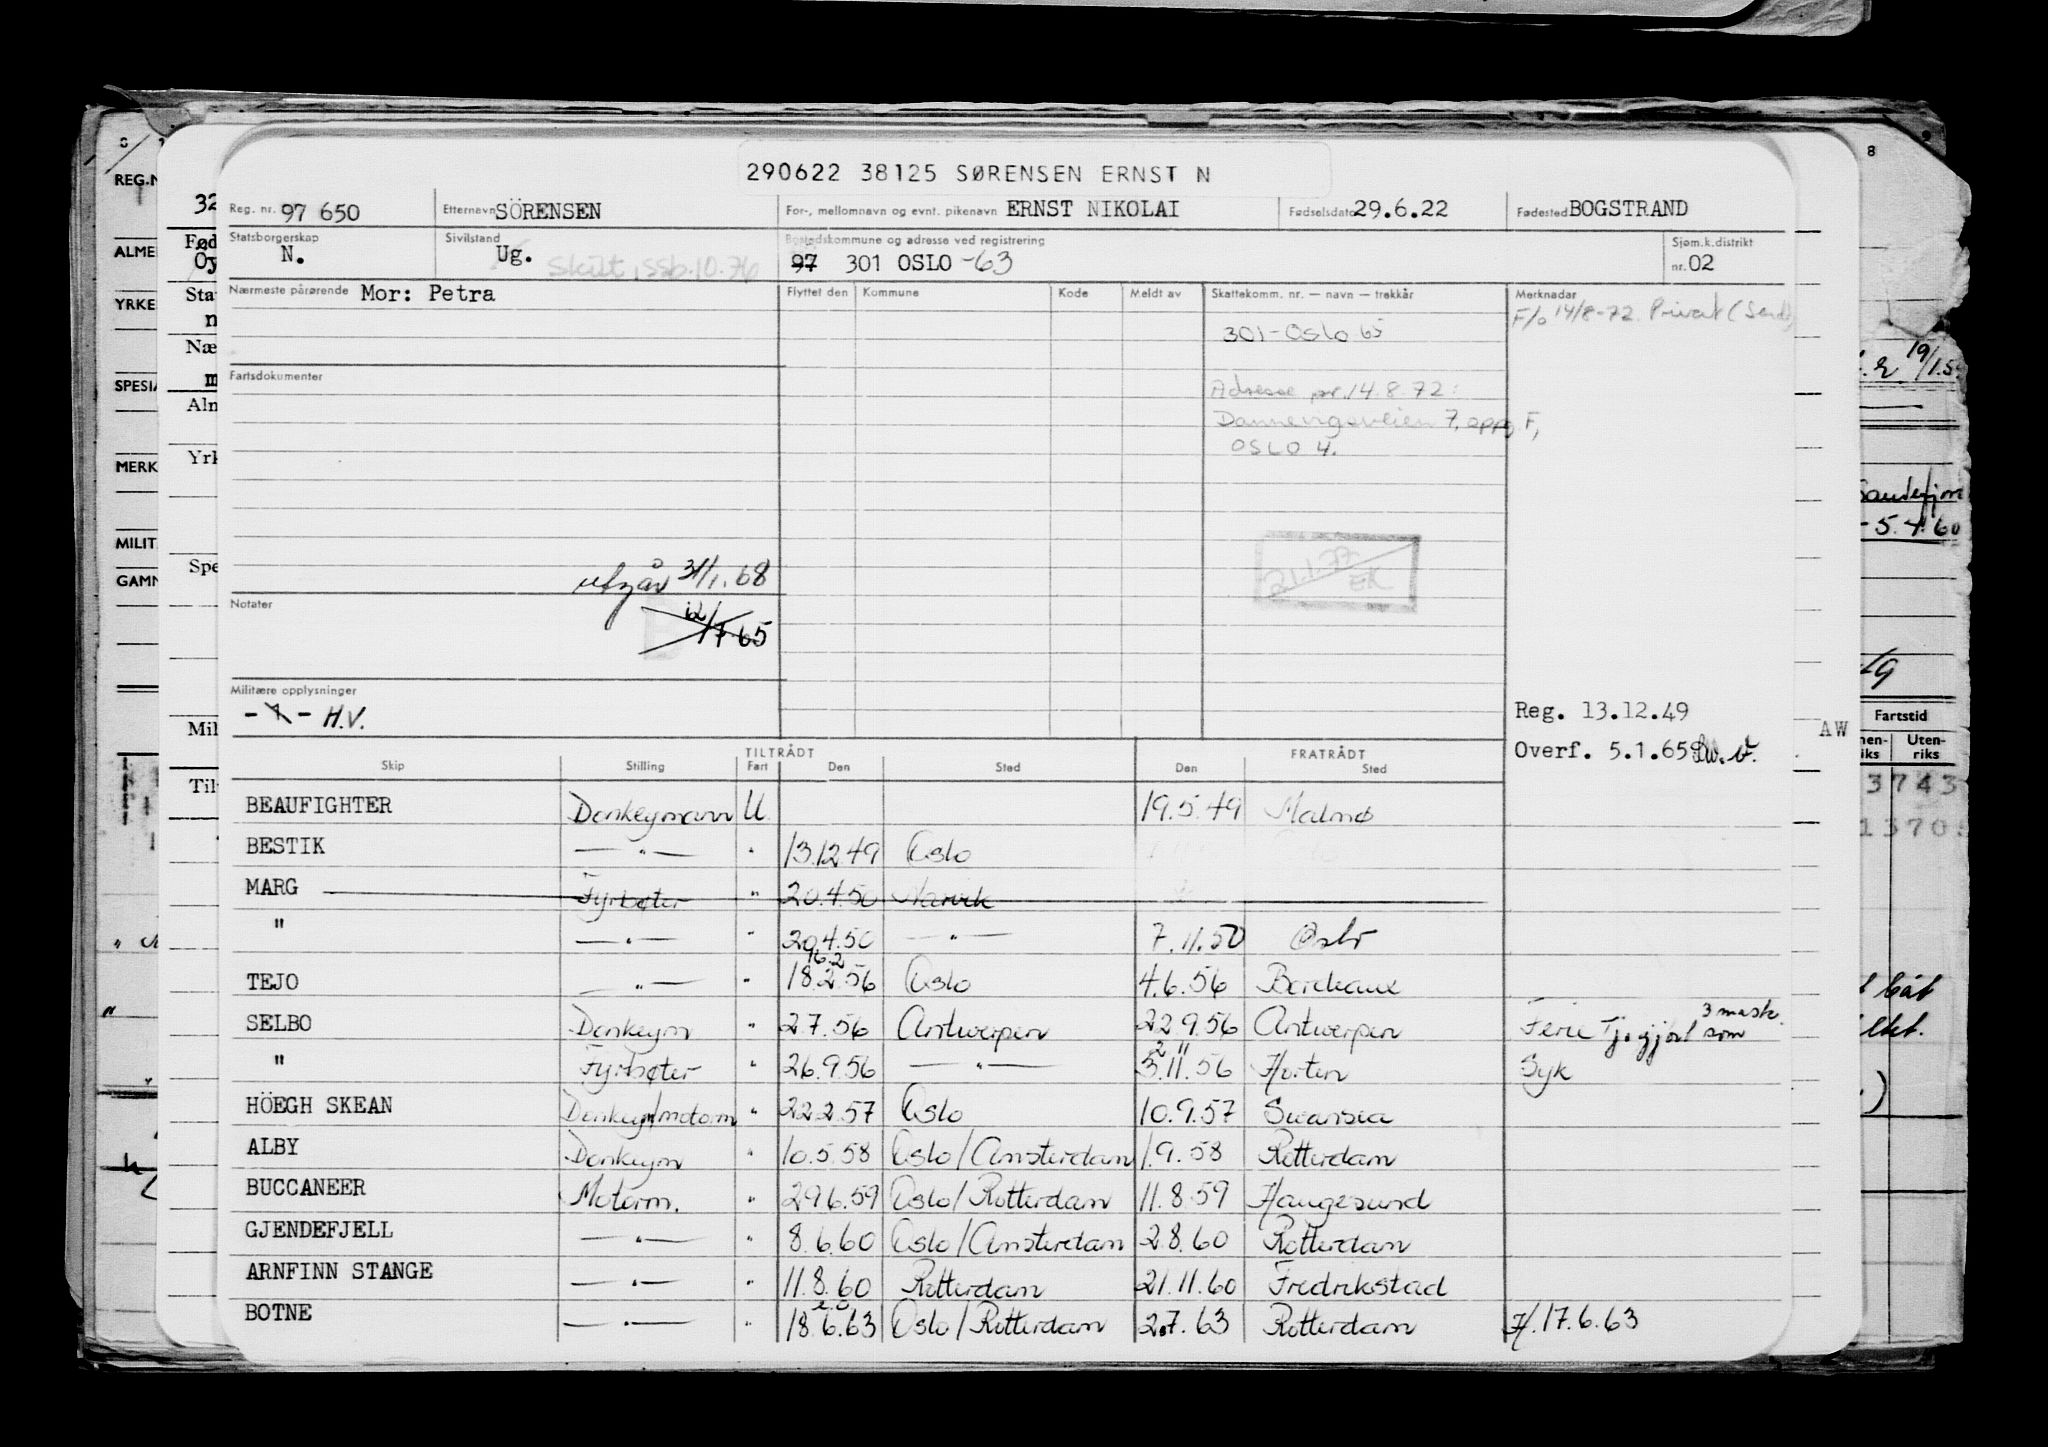 290622 38125 SØRENSEN ERNST N
Reg. nr. 97 650 Etternavn SÖRENSEN For-, mellomnavn og evnt. pikenavn ERNST NIKOLAI Fødselsdato 29.6.22 Fødested BOGSTRAND
Statsborgerskap N. Sivilstand Ug. Skilt, ssb.10.76 Bostedskommune og adresse ved registrering 97 301 OSLO -63 Sjøm.k.distrikt nr. 02
Nærmeste pårørende Mor: Petra Flyttet den Kommune Kode Meldt av Skattekomm. nr. — navn — trekkår Merknader
F/o 14/8-72. Privat
301-Oslo 65
Fartsdokumenter
Adresse pr. 14.8.72:
7, oppg F,
OSLO 4.
21.1.77
EK
utgår 31/1.68
Notater
12/7-65
Militære opplysninger
H.V.
Reg. 13.12.49
Overf. 5.1.65
TILTRÅDT FRATRÅDT
Skip Stilling Fart Den Sted Den Sted
BEAUFIGHTER Donkeymann U 19.5.49 Malmø
BESTIK —"— " 13.12.49 Oslo
MARG Fyrbøter " 20.4.50 Narvik
" —"— " 20.4.50 —"— 7.11.50 Oslo
16.2
TEJO —"— " 18.2.56 Oslo 4.6.56 Bordeaux
SELBO Donkeym " 2.7.56 Antwerpen 22.9.56 Antwerpen Ferie Tj.gjort som 3 mask.
" Fyrbøter " 26.9.56 —"— 3.11.56 Horten Syk
HÖEGH SKEAN Donkeym/motorm " 22.2.57 Oslo 10.9.57 Swansea
ALBY Donkeym " 10.5.58 Oslo/Amsterdam 1.9.58 Rotterdam
BUCCANEER Motorm. " 29.6.59 Oslo/Rotterdam 11.8.59 Haugesund
GJENDEFJELL —"— " 8.6.60 Oslo/Amsterdam 2.8.60 Rotterdam
ARNFINN STANGE —"— " 11.8.60 Rotterdam 21.11.60 Fredrikstad
BOTNE —"— " 18.6.63 Oslo/Rotterdam 2.7.63 Rotterdam H.17.6.63
8
REG.N
ALME
YRKE
SPESIA
MERK
MILIT.
GAMN
32
Fød
Sta
n
Næ
m
Aln
Yrk
Spe
Mil
Til
8
19/1.5
Sandefjor
-5.4.60
AW
Fartstid
nen-
iks
Uten-
riks
3743
1370
båt